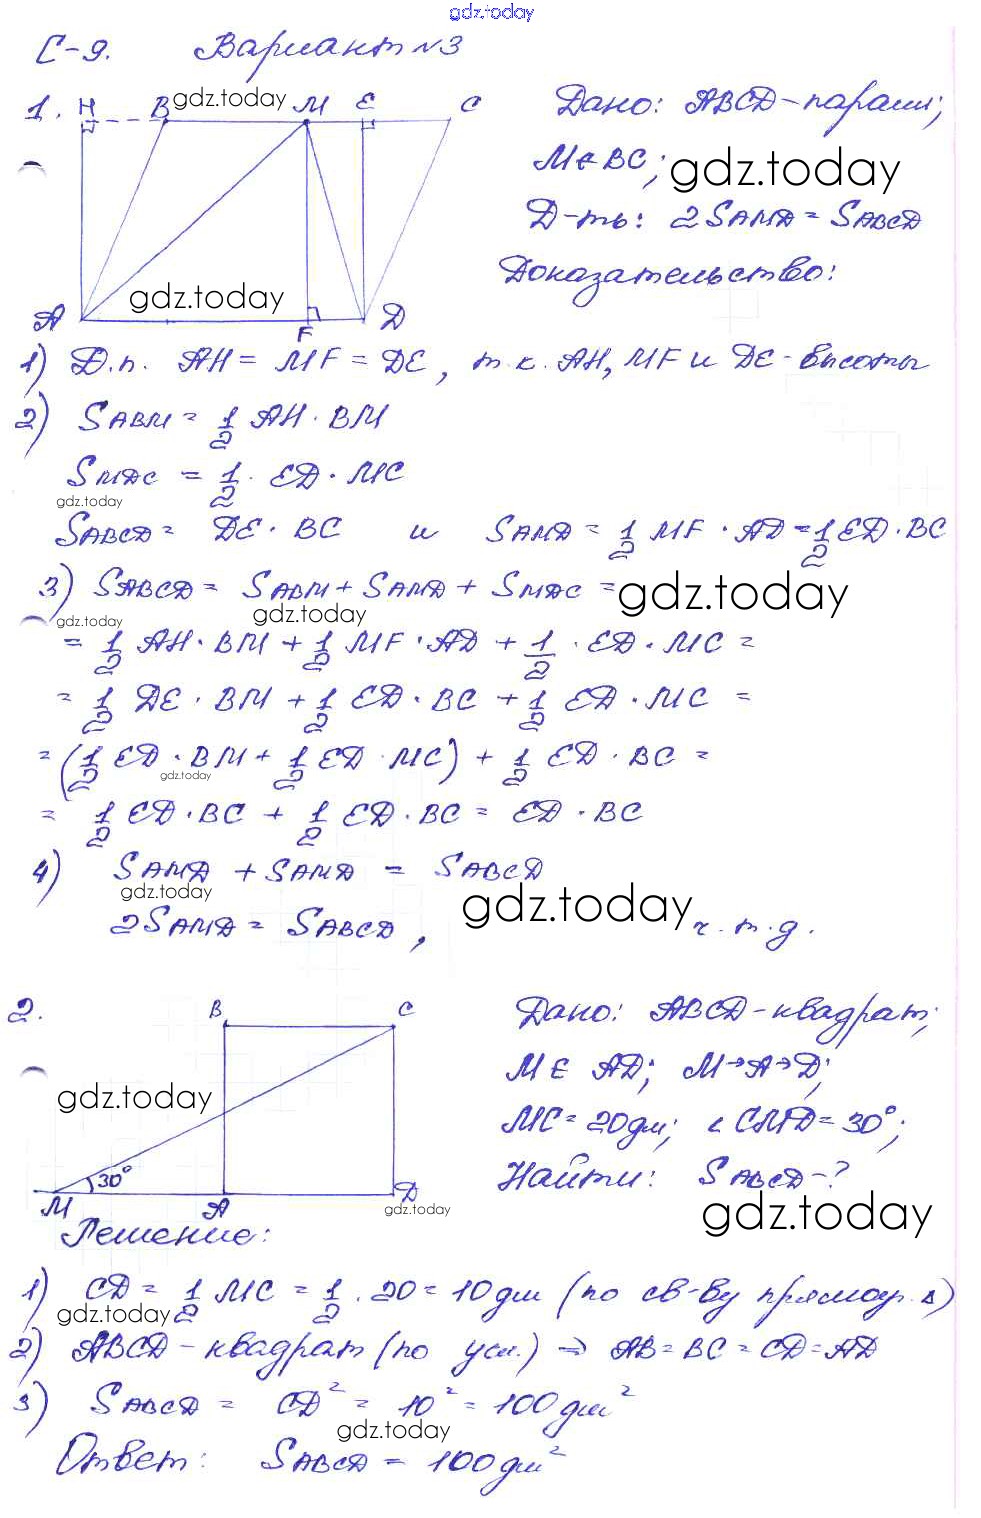 gdz.today
С-9. Вариант №3
1. H B gdz.today M E C
A gdz.today F D
Дано: ABCD - парал.;
M ∈ BC; gdz.today
Д-ть: 2SAMD = SABCD
Доказательство:
1) Д.п. AH = MF = DE, т.к. AH, MF и DE - высоты
2) SABM = 1/2 AH · BM
SMDC = 1/2 · ED · MC
gdz.today
SABCD = DE · BC и SAMD = 1/2 MF · AD = 1/2 ED · BC
3) SABCD = SABM + SAMD + SMDC = gdz.today
gdz.today gdz.today
= 1/2 AH · BM + 1/2 MF · AD + 1/2 · ED · MC =
= 1/2 DE · BM + 1/2 ED · BC + 1/2 ED · MC =
= (1/2 ED · BM + 1/2 ED · MC) + 1/2 ED · BC =
gdz.today
= 1/2 ED · BC + 1/2 ED · BC = ED · BC
4) SAMD + SAMD = SABCD
gdz.today gdz.today
2SAMD = SABCD, ч.т.д.
2. B C
gdz.today
30°
M A D
gdz.today
Дано: ABCD - квадрат;
M ∈ AD; M→A→D;
MC = 20 дм; ∠CMD = 30°;
Найти: SABCD - ?
gdz.today
Решение:
1) CD = 1/2 MC = 1/2 · 20 = 10 дм (по св-ву прямоуг. Δ)
gdz.today
2) ABCD - квадрат (по усл.) ⇒ AB = BC = CD = AD
3) SABCD = CD² = 10² = 100 дм²
gdz.today
Ответ: SABCD = 100 дм²